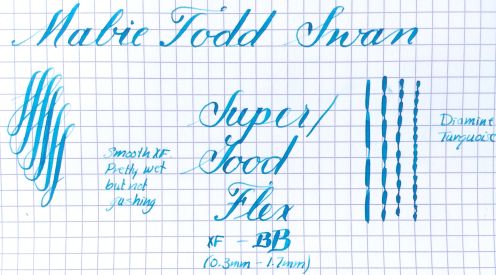 Mabie Todd Swan
Super/
Good
Flex
XF - BB
(0.3mm - 1.7mm)
Smooth XF.
Pretty wet
but not
gushing
Diamine
Turquoise